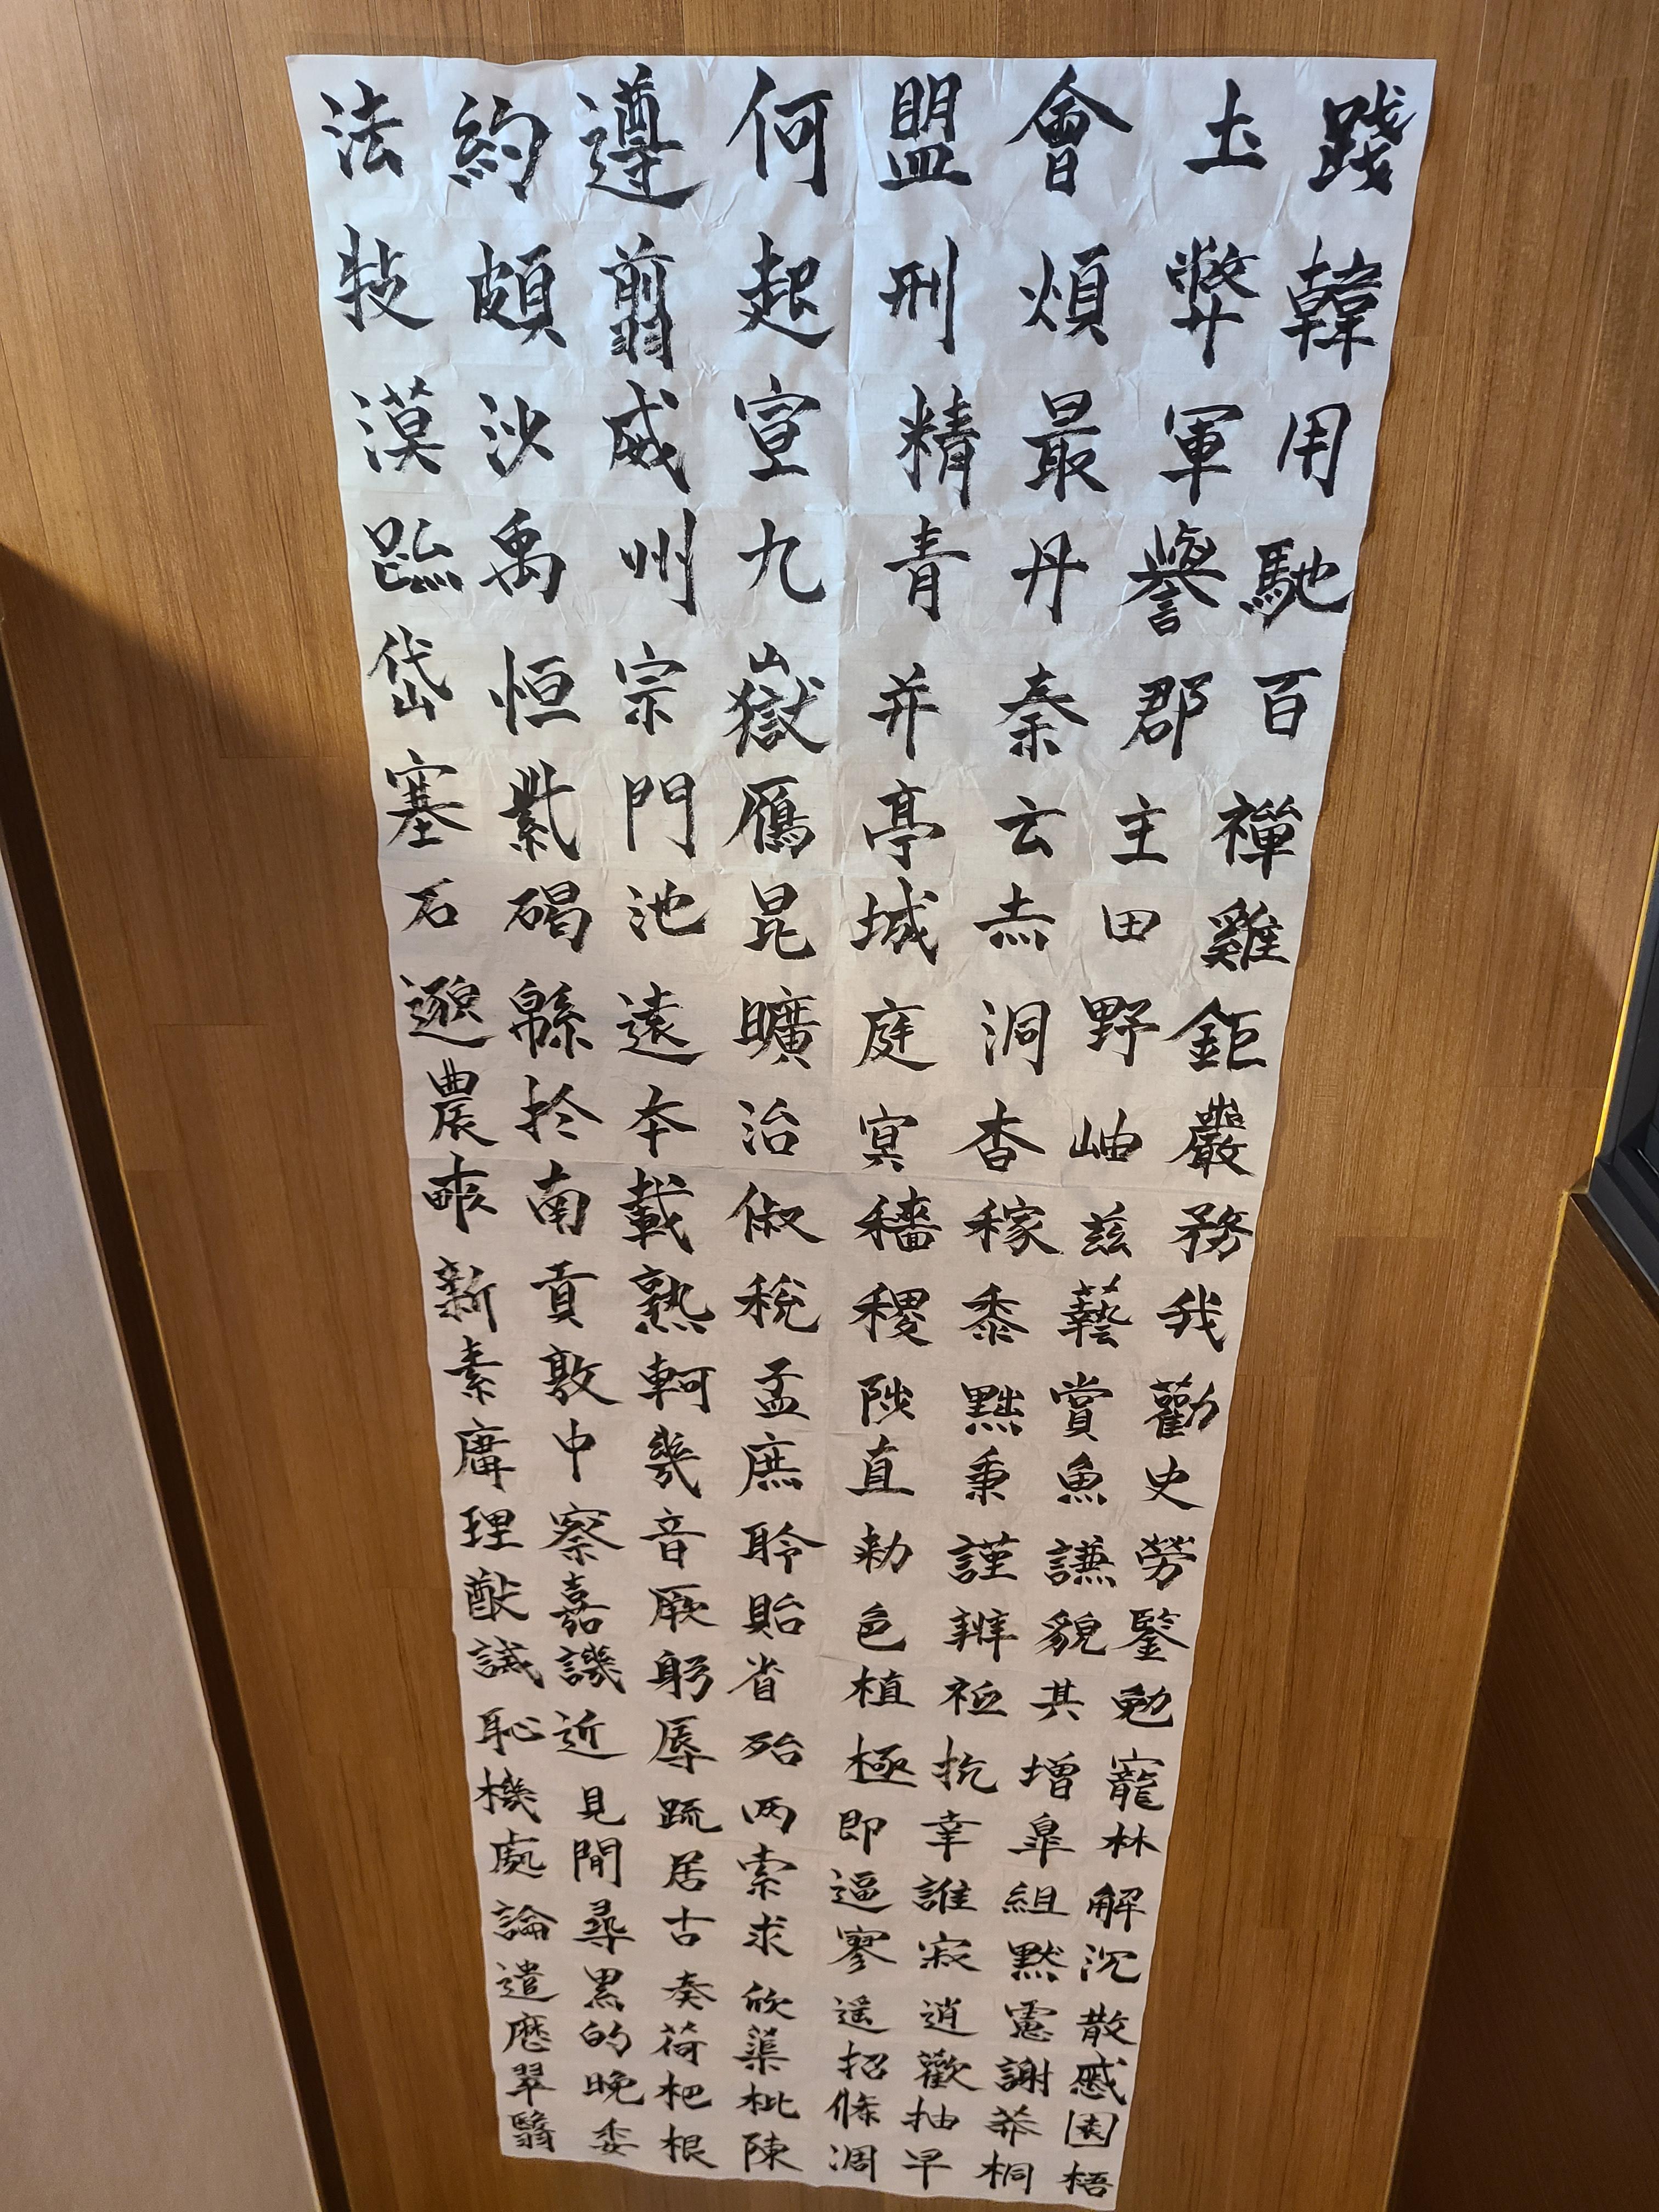 踐土會盟何遵約法
韓弊煩刑起翦頗牧
用軍最精宣威沙漠
馳譽丹青九州禹跡
百郡秦并嶽宗恒岱
禪主云亭鴈門紫塞
雞田赤城昆池碣石
鉅野洞庭曠遠緜邈
巖岫杳冥治本於農
務茲稼穡俶載南畝
我藝黍稷稅熟貢新
勸賞黜陟孟軻敦素
史魚秉直庶幾中庸
勞謙謹勅聆音察理
鑒貌辨色貽厥嘉猷
勉其祗植省躬譏誡
寵增抗極殆辱近恥
林皐幸即两疏見機
解組誰逼索居閒處
沉默寂寥求古尋論
散慮逍遙欣奏累遣
慼謝歡招渠荷的歷
園莽抽條枇杷晚翠
梧桐早凋陳根委翳